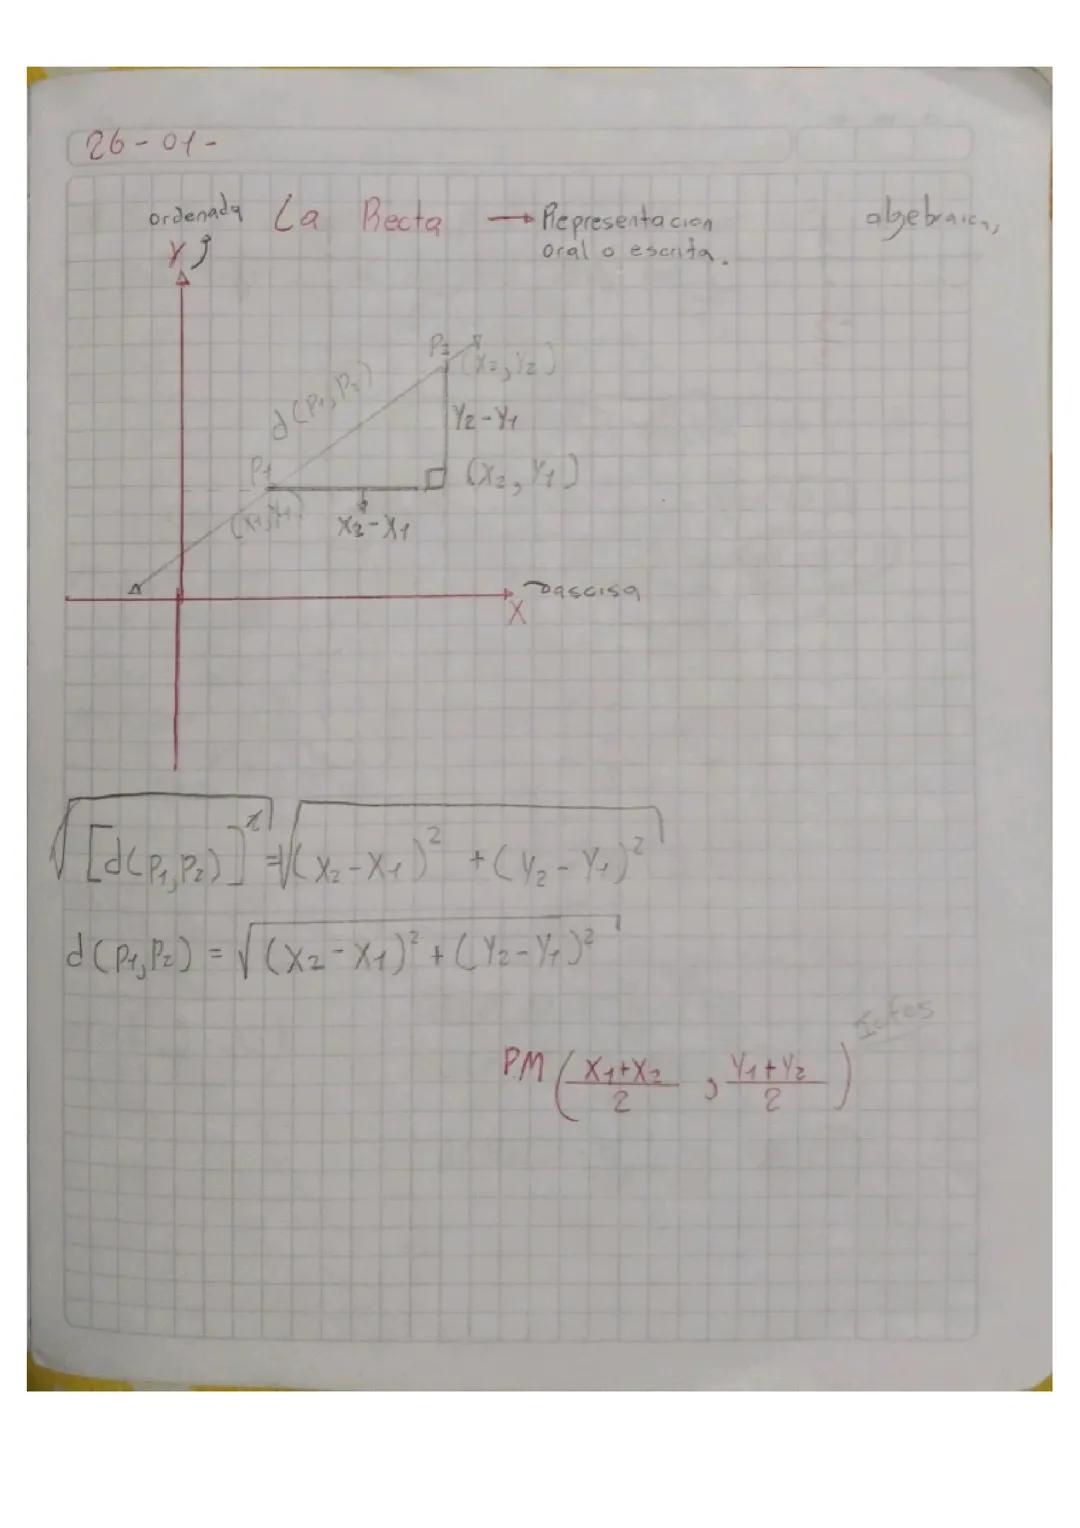 26-01-
ordenada La Recta → Representacion algebraica,
oral o escrita.
Y
P2 (X2, Y2)
d(P1, P2)
Y2-Y1
P1 (X2, Y1)
(X1, Y1) X2-X1
ascisa
X
√[d(P1,P2)]² = √(X2-X1)² + (Y2-Y1)²
d(P1,P2) = √(X2-X1)² + (Y2-Y1)²
PM (X1+X2/2, Y1+Y2/2)